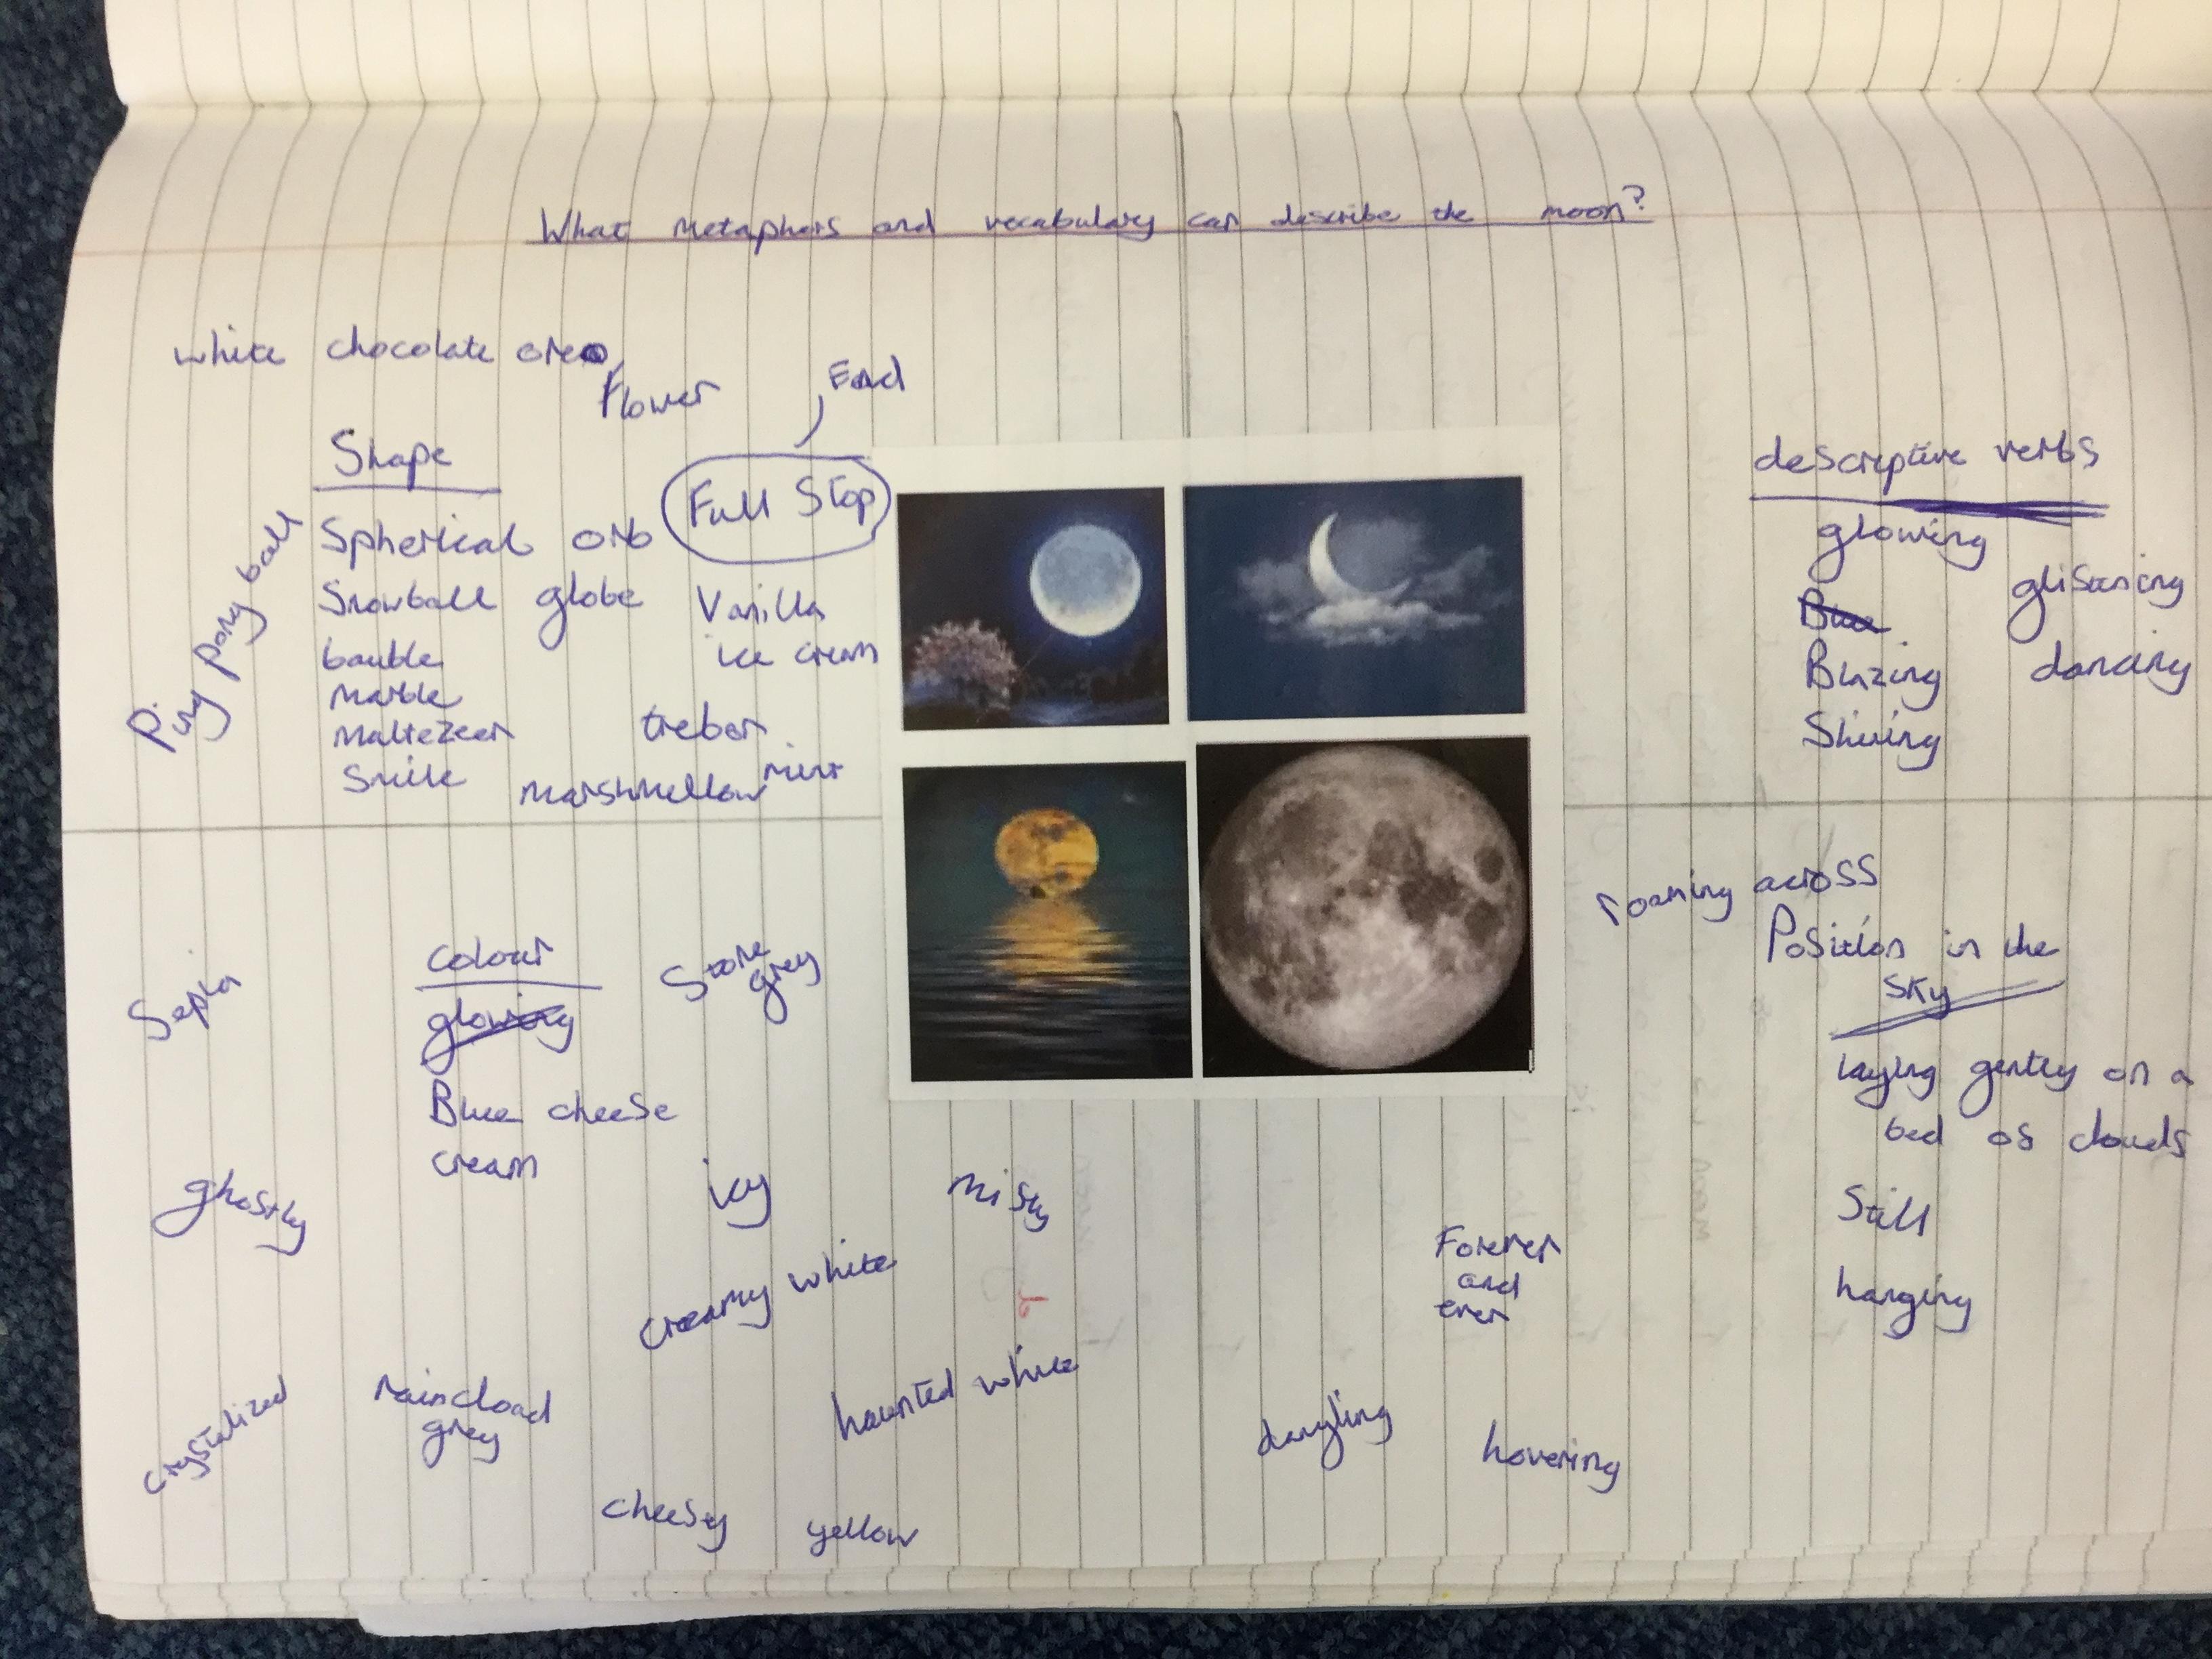 What metaphors and vocabulary can describe the moon?
white chocolate oreo
Flower
End
Shape
Full Stop
Ping pong ball
Spherical orb
Snowball globe
Vanilla
ice cream
bauble
Marble
Maltezeer
trebor
mint
Smile
Marshmellow
descriptive verbs
glowing
glistening
Blue
Blazing
dancing
Shining
colour
glowing
Stone
grey
Sepia
Blue cheese
cream
ghostly
icy
misty
creamy white
haunted white
crystalized
raincload
grey
cheesy yellow
roaming across
Position in the
sky
laying gently on a
bed of clouds
Still
Forever
and
ever
hanging
dangling
hovering